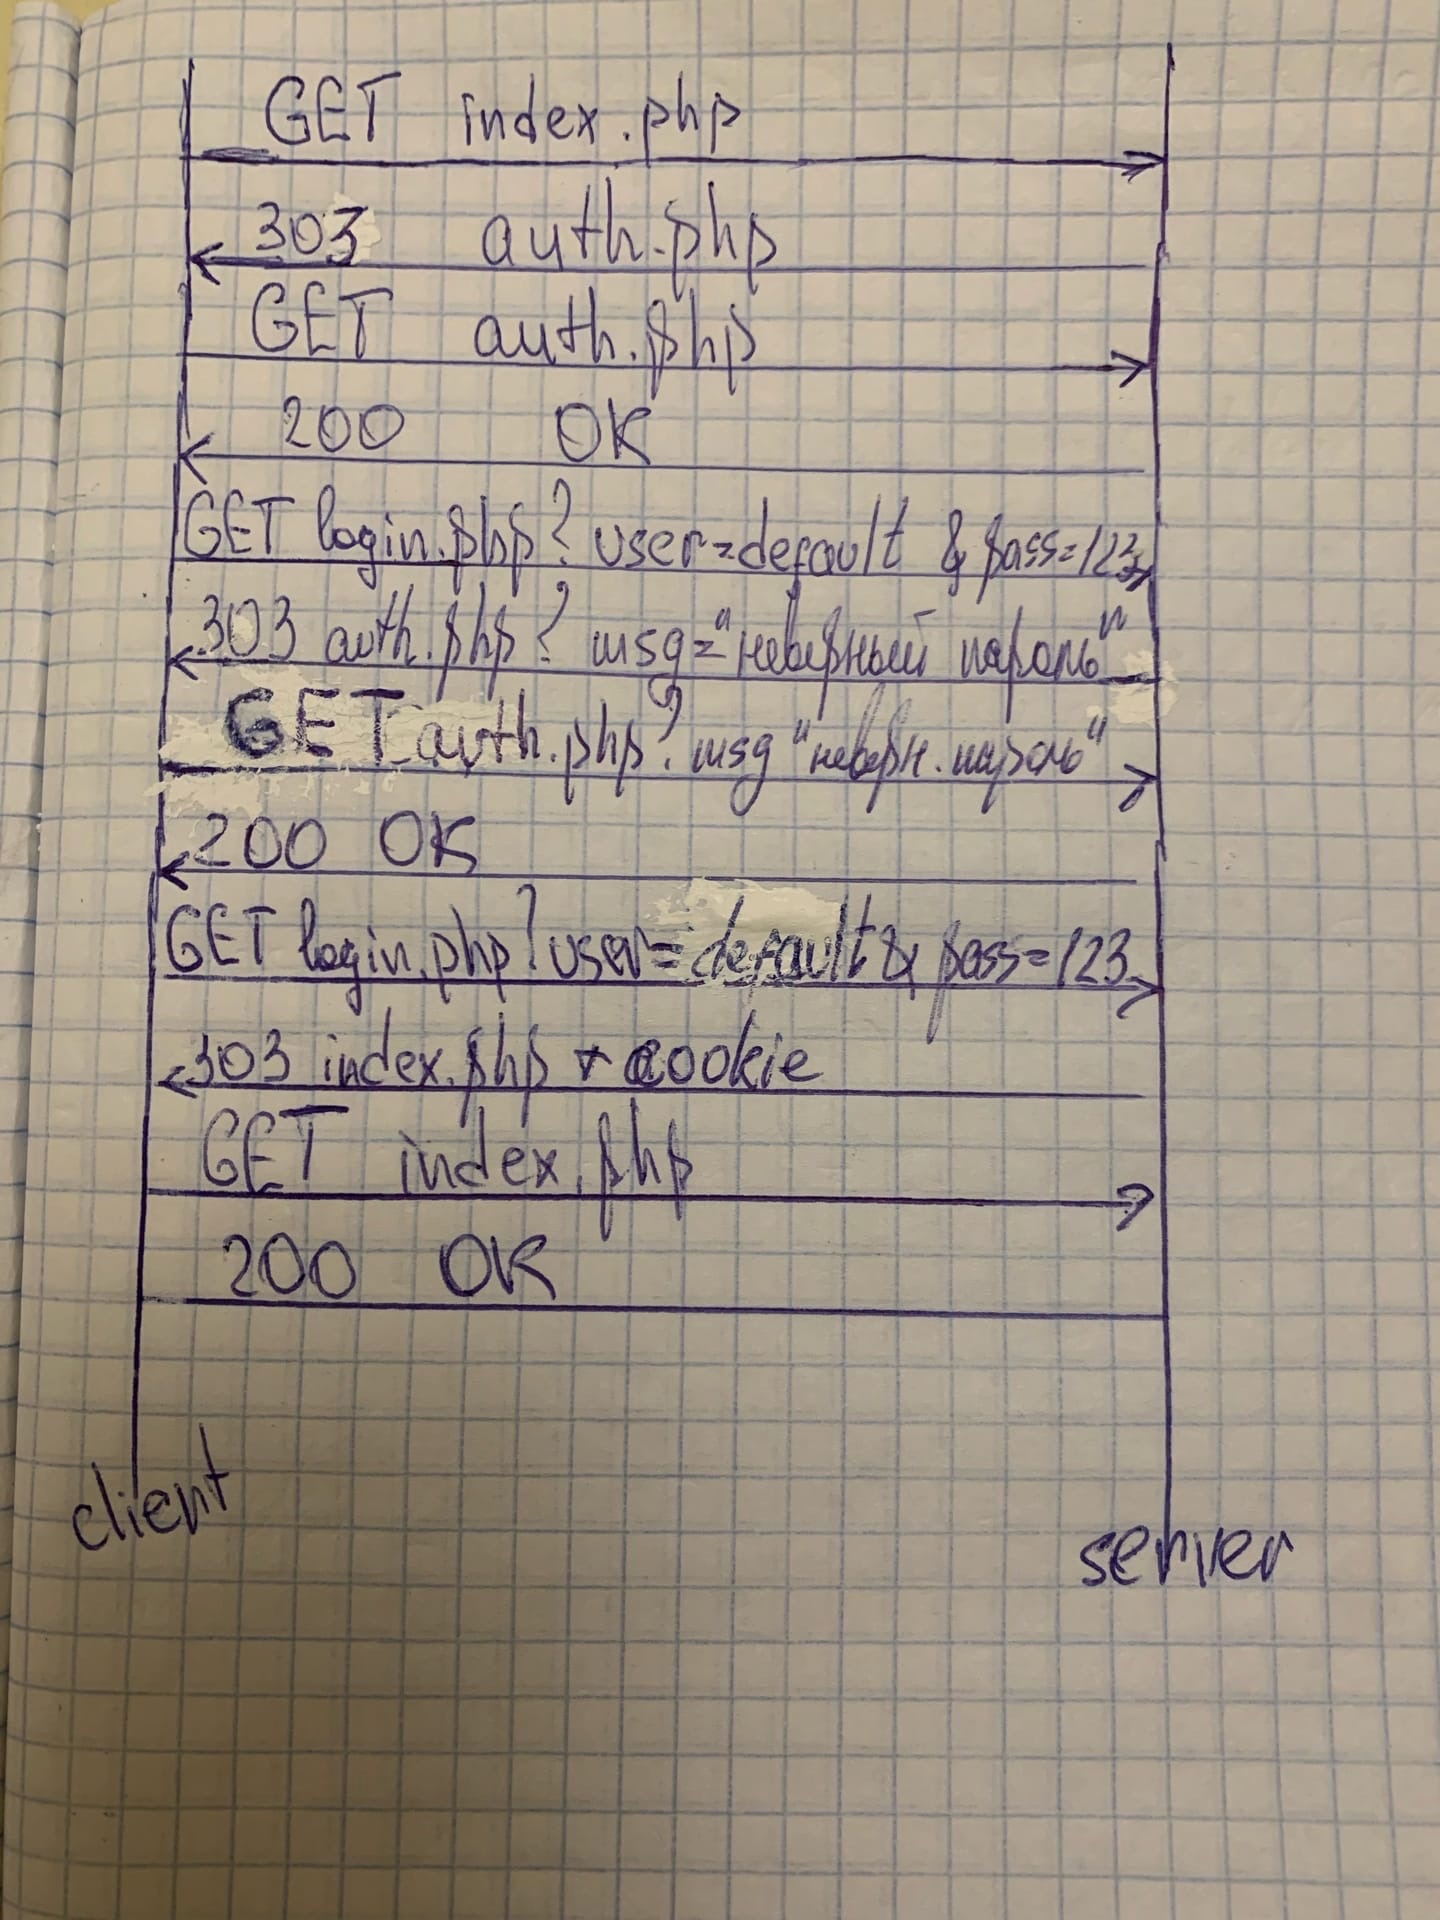 GET index.php
303 auth.php
GET auth.php
200 OK
GET login.php? user=default & pass=123
303 auth.php? msg="неверный пароль"
GET auth.php? msg "неверн. пароль"
200 OK
GET login.php?user=default & pass=123
303 index.php + cookie
GET index.php
200 OK
client
server